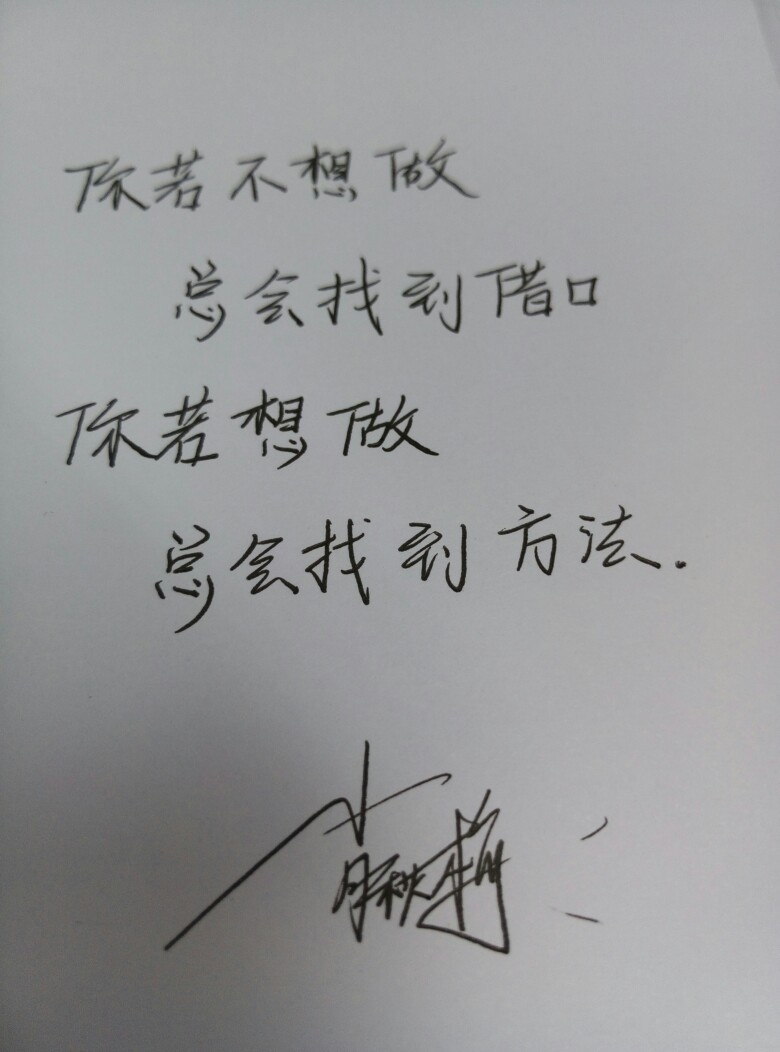 你若不想做
总会找到借口
你若想做
总会找到方法.